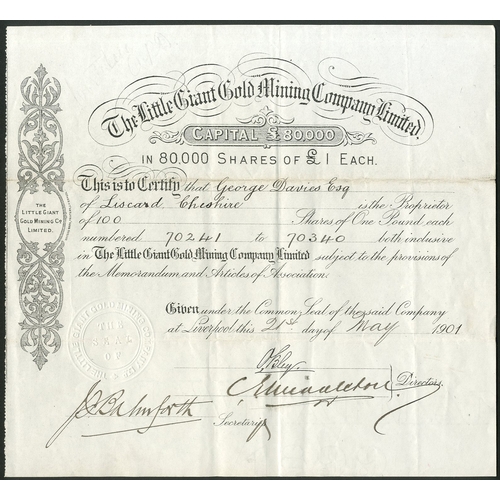 The Little Giant Gold Mining Company Limited.
CAPITAL £80,000
IN 80,000 SHARES OF £1 EACH.
This is to Certify that George Davies Esq
of Liscard Cheshire is the Proprietor
of 100 Shares of One Pound each
numbered 70241 to 70340 both inclusive
in The Little Giant Gold Mining Company Limited subject to the provisions of
the Memorandum and Articles of Association.
THE
LITTLE GIANT
GOLD MINING CO
LIMITED.
Given under the Common Seal of the said Company
at Liverpool this 21st day of May 1901
THE
SEAL
OF
C E Middleton
Directors
Secretary